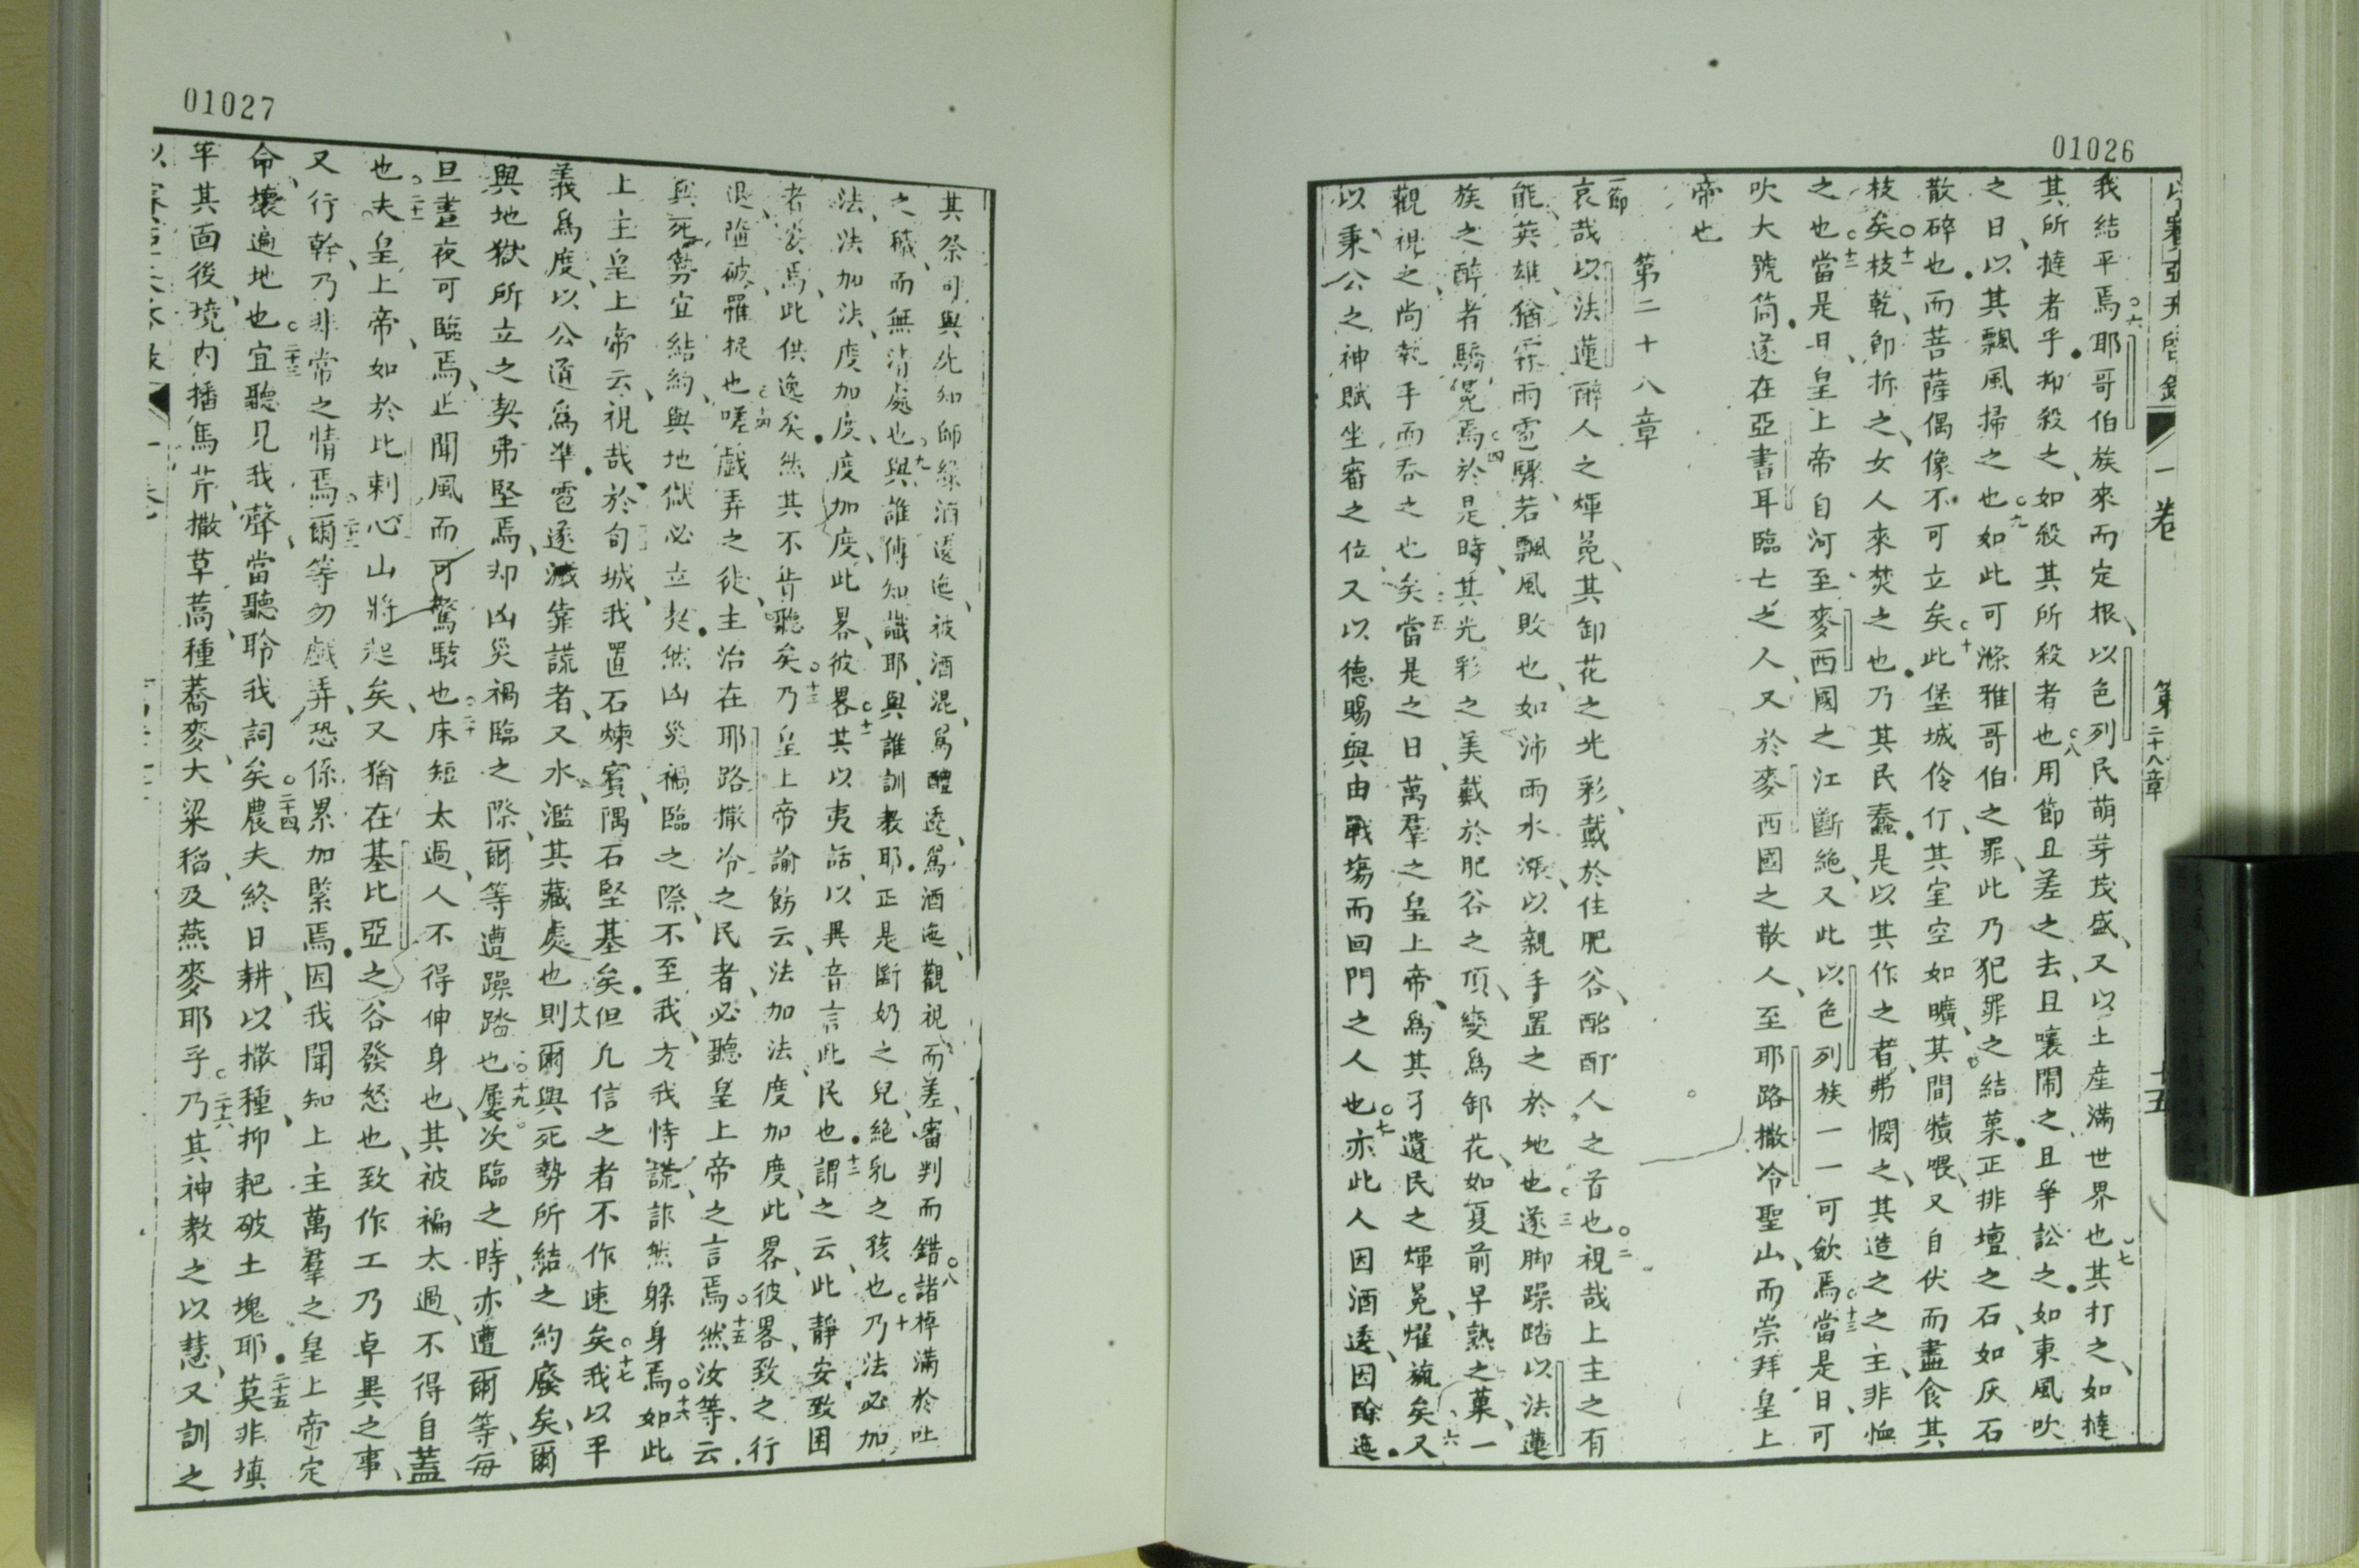 01026
一卷
第二十八章
十五
我結平焉○六耶哥伯族來而定根、以色列民萌芽茂盛、又以土產滿世界也○七其打之、如撻
其所撻者乎。抑殺之、如殺其所殺者也○八用節且差之去、且嚷鬧之、且爭訟之。如東風吹
之日、以其飄風掃之也○九如此可滌雅哥伯之罪、此乃犯罪之結菓。正排壇之石、如灰石
散碎也。而菩薩偶像不可立矣○十此堡城伶仃、其室空如曠、其間犢喂、又自伏而盡食其
枝矣○十一枝乾、卽折之、女人來焚之也。乃其民蠢。是以其作之者、弗憫之、其造之之主、非恤
之也○十二當是日、皇上帝自河至麥西國之江斷絶、又此以色列族一一可飲焉○十三當是日、可
吹大號筒。遂在亞書耳臨亡之人、又於麥西國之散人、至耶路撒冷聖山、而崇拜皇上
帝也
第二十八章
一節
哀哉以法蓮醉人之煇冕、其卸花之光彩、戴於住肥谷、酗酊人之首也○二視哉上主之有
能、英雄、猶霖雨雹驟、若飄風敗也、如沛雨水漲、以親手置之於地也○三遂脚躁踏以法蓮
族之醉者驕冕焉○四於是時、其光彩之美、戴於肥谷之頂、變爲卸花、如夏前早熟之菓、一
觀視之、尚執手而吞之也矣○五當是之日、萬羣之皇上帝、爲其孑遺民之煇冕、耀旒矣○六又
以秉公之神賦坐審之位、又以德賜與由戰塲而回門之人也○七亦此人因酒透、因醉迤。
01027
其祭司與先知師緣酒遠迤、被酒混、爲醴遶、爲酒迤、觀視而差、審判而錯○八諸棹滿於吐
之穢、而無淸處也○九與誰傅知識耶、與誰訓教耶。正是斷奶之兒、絶乳之孩也○十乃法必加
法、法加法、度加度、度加度、此畧、彼畧○十一其以夷話、以異音言此民也。○十二謂之云、此靜安致困
者安焉、此供逸矣。然其不肯聽矣○十三乃皇上帝諭飭云、法加法、度加度、此畧、彼畧、致之行
退、隨破、罹捉也○十四嗟戲弄之徒、主治在耶路撒冷之民者、必聽皇上帝之言焉○十五然汝等、云、
與死勢宜結約、與地獄必立契。然凶災禍臨之際、不至我、方我恃謊、詐然躱身焉○十六如此
上主皇上帝云、視哉、於旬城、我置石煉賓、隅石堅基矣。但凡信之者不作速矣○十七我以平
義爲度、以公道爲準。雹遂滅靠謊者、又水濫其藏處也○十八則爾與死勢所結之約廢矣、爾
與地獄所立之契弗堅焉、却凶災禍臨之際、爾等遭躁踏也○十九屢次臨之時、亦遭爾等、每
旦晝夜可臨焉、止聞風而可驚駭也○二十床短太過、人不得伸身也、其被褊太過、不得自蓋
也○二十一夫皇上帝、如於比剌心山將起矣、又猶在基比亞之谷發怒也、致作工、乃卓異之事、
又行幹、乃非常之情焉○二十二爾等勿戲弄、恐係累加緊焉。因我聞知上主萬羣之皇上帝定
命壞遍地也○二十三宜聽見我聲、當聽聆我詞矣○二十四農夫終日耕、以撒種、抑耙破土塊耶。○二十五莫非塡
平其面後、境內播馬芹、撒草蒿、種蕎麥、大粱稻、及燕麥耶乎○二十六乃其神教之以慧、又訓之